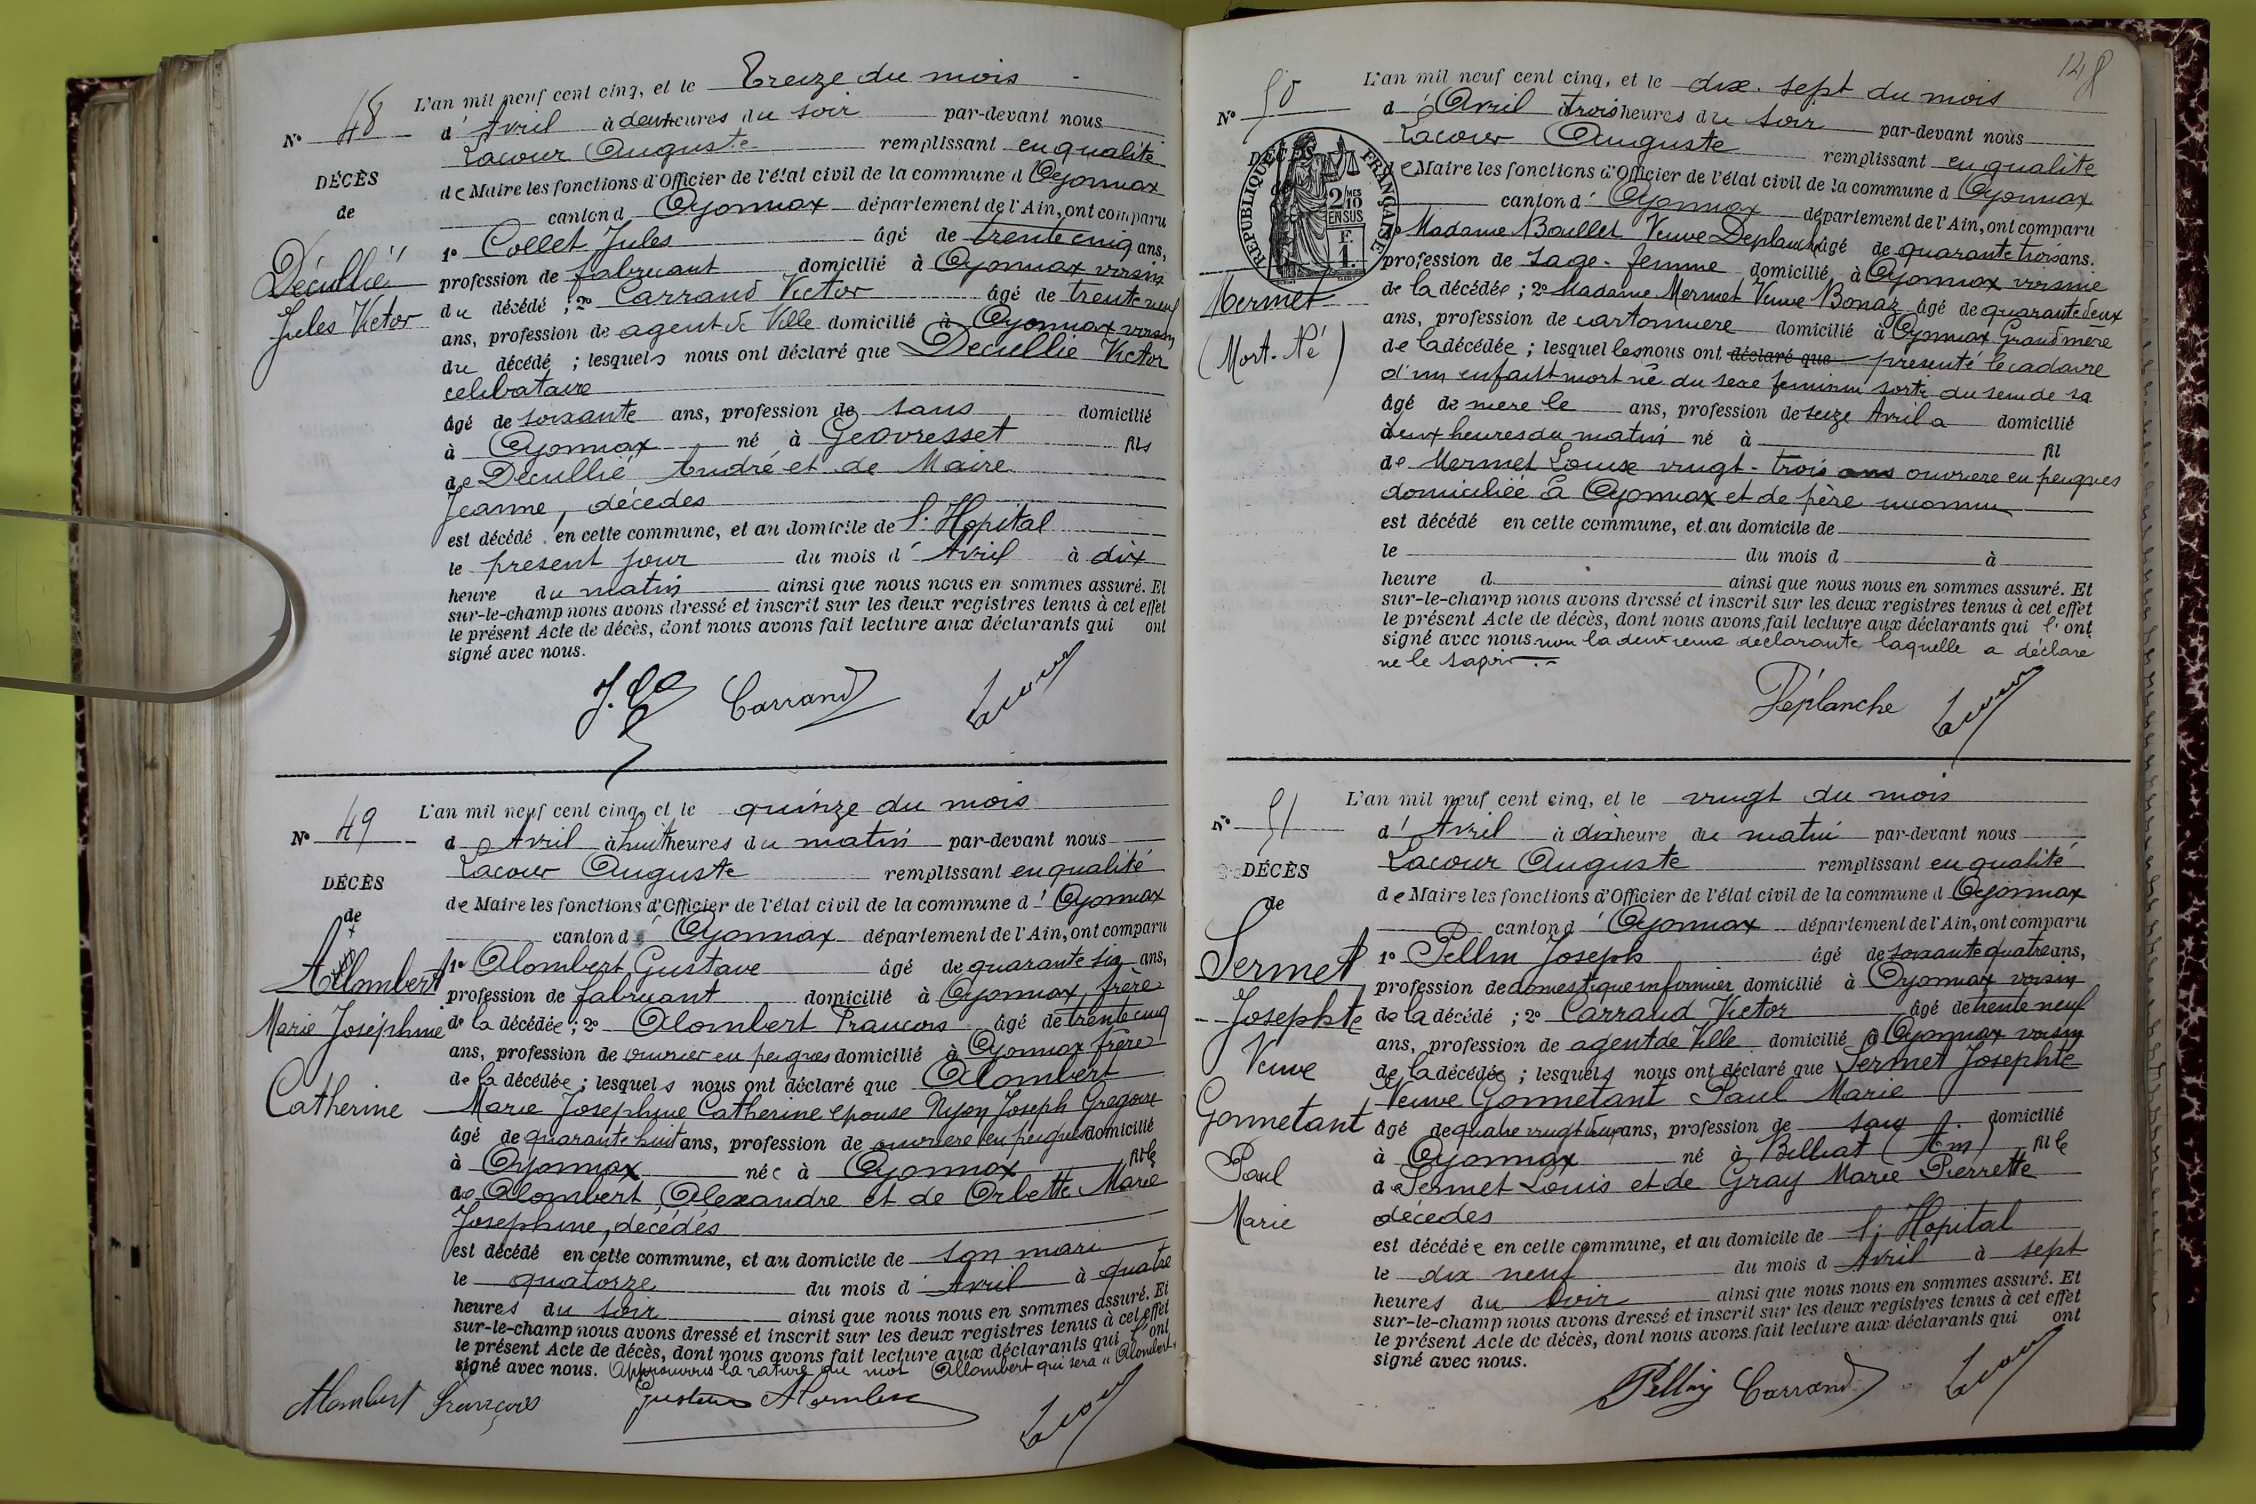 L'an mil neuf cent cinq, et le Treize du mois
N° 48 d'Avril à deux heures du soir par-devant nous
Lacour Auguste remplissant en qualité
DÉCÈS
de Maire les fonctions d'Officier de l'état civil de la commune d Oyonnax
de
canton d Oyonnax département de l'Ain, ont comparu
1° Collet Jules âgé de trente cinq ans,
Décullié
profession de fabricant domicilié à Oyonnax voisin
Jules Victor
du décédé ; 2° Carrand Victor âgé de trente neuf
ans, profession de agent de Ville domicilié à Oyonnax voisin
du décédé ; lesquels nous ont déclaré que Décullié Victor
celibataire
âgé de soixante ans, profession de sans domicilié
à Oyonnax né à Géovresset fils
de Décullié André et de Maire
Jeanne, décédés
est décédé en cette commune, et au domicile de l'Hopital
le present jour du mois d'Avril à dix
heure du matin ainsi que nous nous en sommes assuré. Et
sur-le-champ nous avons dressé et inscrit sur les deux registres tenus à cet effet
le présent Acte de décès, dont nous avons fait lecture aux déclarants qui ont
signé avec nous.
Carrand Lacour
L'an mil neuf cent cinq, et le quinze du mois
N° 49 d Avril à huit heures du matin par-devant nous
Lacour Auguste remplissant en qualité
DÉCÈS
de Maire les fonctions d'Officier de l'état civil de la commune d'Oyonnax
de
canton d Oyonnax département de l'Ain, ont comparu
1° Alombert Gustave âgé de quarante six ans,
Allombert
profession de fabricant domicilié à Oyonnax frère
Marie Joséphine
de la décédée ; 2° Alombert François âgé de trente cinq
ans, profession de ouvrier en peignes domicilié à Oyonnax frère
de la décédée ; lesquels nous ont déclaré que Alombert
Catherine
Marie Josephine Catherine epouse Nyon Joseph Gregoire
âgé de quarante huit ans, profession de ouvriere en peignes domicilié
à Oyonnax née à Oyonnax fille
de Alombert Alexandre et de Orbette Marie
Josephine, décédés
est décédé en cette commune, et au domicile de son mari
le quatorze du mois d'Avril à quatre
heures du soir ainsi que nous nous en sommes assuré. Et
sur-le-champ nous avons dressé et inscrit sur les deux registres tenus à cet effet
le présent Acte de décès, dont nous avons fait lecture aux déclarants qui l'ont
signé avec nous. Approuvons la rature du mot Allombert qui sera "Alombert"
Alombert François Gustave Alombert Lacour
148
L'an mil neuf cent cinq, et le dix-sept du mois
N° 50 d'Avril à trois heures du soir par-devant nous
Lacour Auguste remplissant en qualité
DÉC
RÉPUBLIQUE FRANÇAISE
2/10 MES EN SUS
F. 1.
de Maire les fonctions d'Officier de l'état civil de la commune d Oyonnax
canton d'Oyonnax département de l'Ain, ont comparu
Madame Boullet Veuve Deplanche âgé de quarante trois ans.
profession de Sage-femme domicilié à Oyonnax voisine
Mermet
de la décédée ; 2° Madame Mermet Veuve Bonaz âgé de quarante deux
ans, profession de cartonniere domicilié à Oyonnax Grand mère
(Mort-Né)
de la décédée ; lesquelles nous ont déclaré que presenté le cadavre
d'un enfant mort né du sexe feminin sorti du sein de sa
âgé de mere le ans, profession de seize Avril a domicilié
deux heures du matin né à fil
de Mermet Louise vingt-trois ans ouvriere en peignes
domiciliée à Oyonnax et de père inconnu
est décédé en cette commune, et au domicile de
le du mois d à
heure d ainsi que nous nous en sommes assuré. Et
sur-le-champ nous avons dressé et inscrit sur les deux registres tenus à cet effet
le présent Acte de décès, dont nous avons fait lecture aux déclarants qui l'ont
signé avec nous non la deuxieme declarante laquelle a déclaré
ne le savoir.
Déplanche Lacour
L'an mil neuf cent cinq, et le vingt du mois
N° 51 d'Avril à dix heure du matin par-devant nous
Lacour Auguste remplissant en qualité
DÉCÈS
de Maire les fonctions d'Officier de l'état civil de la commune d Oyonnax
de
canton d'Oyonnax département de l'Ain, ont comparu
1° Pellin Joseph âgé de soixante quatre ans,
Sermet
profession de domestique infirmier domicilié à Oyonnax voisin
Josephte
de la décédé ; 2° Carrand Victor âgé de trente neuf
ans, profession de agent de Ville domicilié à Oyonnax voisin
Veuve
de la décédée ; lesquels nous ont déclaré que Sermet Josephte
Veuve Gonnetant Paul Marie
Gonnetant
âgé de quatre vingt deux ans, profession de sans domicilié
Paul
à Oyonnax né à Belliat (Ain) fille
de Sermet Louis et de Gray Marie Pierrette
Marie
décédés
est décédée en cette commune, et au domicile de l'Hopital
le dix neuf du mois d Avril à sept
heures du soir ainsi que nous nous en sommes assuré. Et
sur-le-champ nous avons dressé et inscrit sur les deux registres tenus à cet effet
le présent Acte de décès, dont nous avons fait lecture aux déclarants qui ont
signé avec nous.
Pellin Carrand Lacour